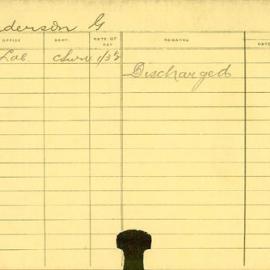 nderson G
OFFICE DEPT. RATE OF PAY REMARKS DATE
Lab. 1/3½
Discharged